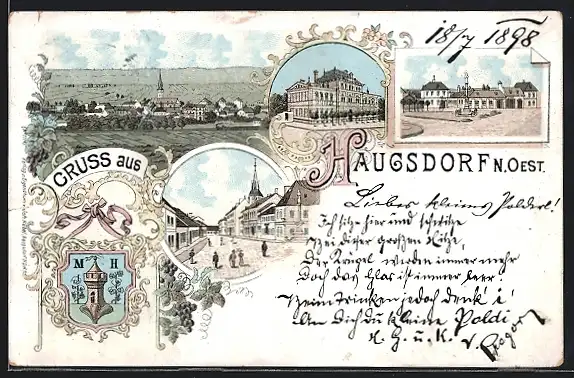 18/7 1898
GRUSS aus
HAUGSDORF N. OEST.
M H
Liebes kleines Polderl!
Ich sitze hier und schwitze
bei dieser großen Hitze,
Der Krügel werden immer mehr
Doch das Glas ist immer leer.
Beim Trinken jedoch denk' i
An Dich du kleine Poldi
v.